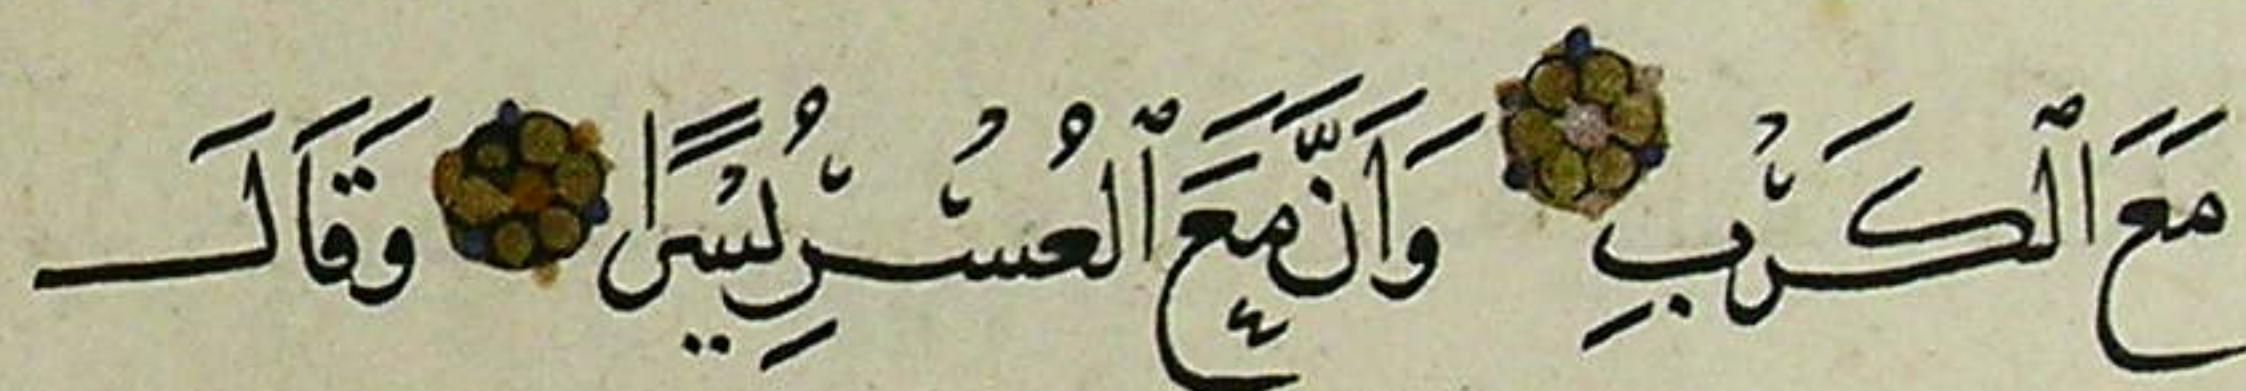 مَعَ ٱلْكَرْبِ وَاَنَّ مَعَ ٱلْعُسْرِ يُسْرًا وَقَالَ